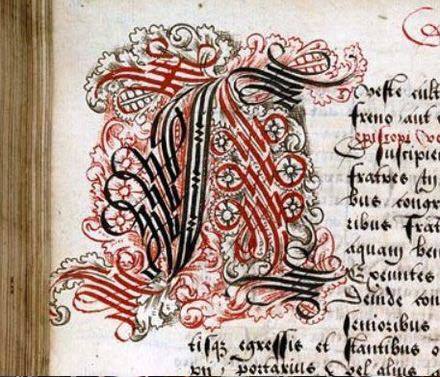 Veste cult
freno aut
episcopi
Suscipien
fratres In
bus congr
ribus frat
aquam ben
Exeuntes
Deinde con
senioribus
tisqꝫ egressis et stantibus
portarius Vel alius